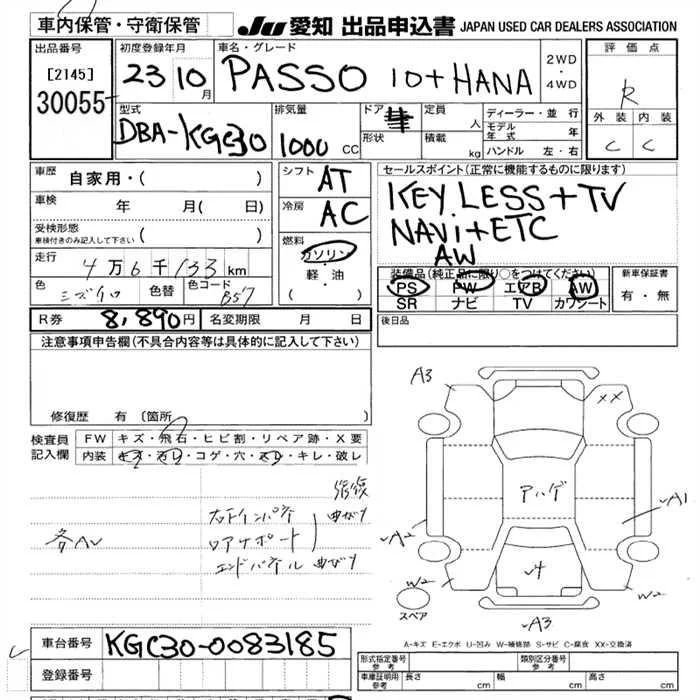 車内保管・守衛保管
JU 愛知 出品申込書 JAPAN USED CAR DEALERS ASSOCIATION
出品番号
[2145]
30055
初度登録年月
23 10月
車名・グレード
PASSO 10+HANA
2WD
・
4WD
評価点
R
外装 内装
C C
型式
DBA-KGC30
排気量
1000 CC
ドア
形状
定員 人
積載 kg
ディーラー・並行
モデル年式 年
ハンドル 左・右
車歴 自家用・( )
車検 年 月( 日)
受検形態
車検付きのみ記入して下さい ( )
走行 4万6千133km
色 色替 色コード B57
シフト AT
冷房 AC
燃料
ガソリン
軽・油
・( )
セールスポイント(正常に機能するものに限ります)
KEYLESS+TV
NAVi+ETC
AW
装備品(純正品に限り○をつけてください)
PS PW エアB AW
SR ナビ TV カワシート
新車保証書
有・無
R券 8,890円 名変期限 月 日
後日品
注意事項申告欄(不具合内容等は具体的に記入して下さい)
修復歴 有(箇所 )
検査員
記入欄
FW キズ・飛石・ヒビ割・リペア跡・X要
内装 キズ・汚レ・コゲ・穴・スレ・キレ・破レ
曲がり
ロアサポート
エンドパネル 曲がり
A3
XX
アハゲ
A1
A2
W2
W2
A3
スペア
A-キズ E-エクボ U-凹み W-補修跡 S-サビ C-腐食 XX-交換済
車台番号 KGC30-0083185
登録番号
形式指定番号
参考
類別区分番号
参考
車庫証明用
参考
長さ cm 幅 cm 高さ cm